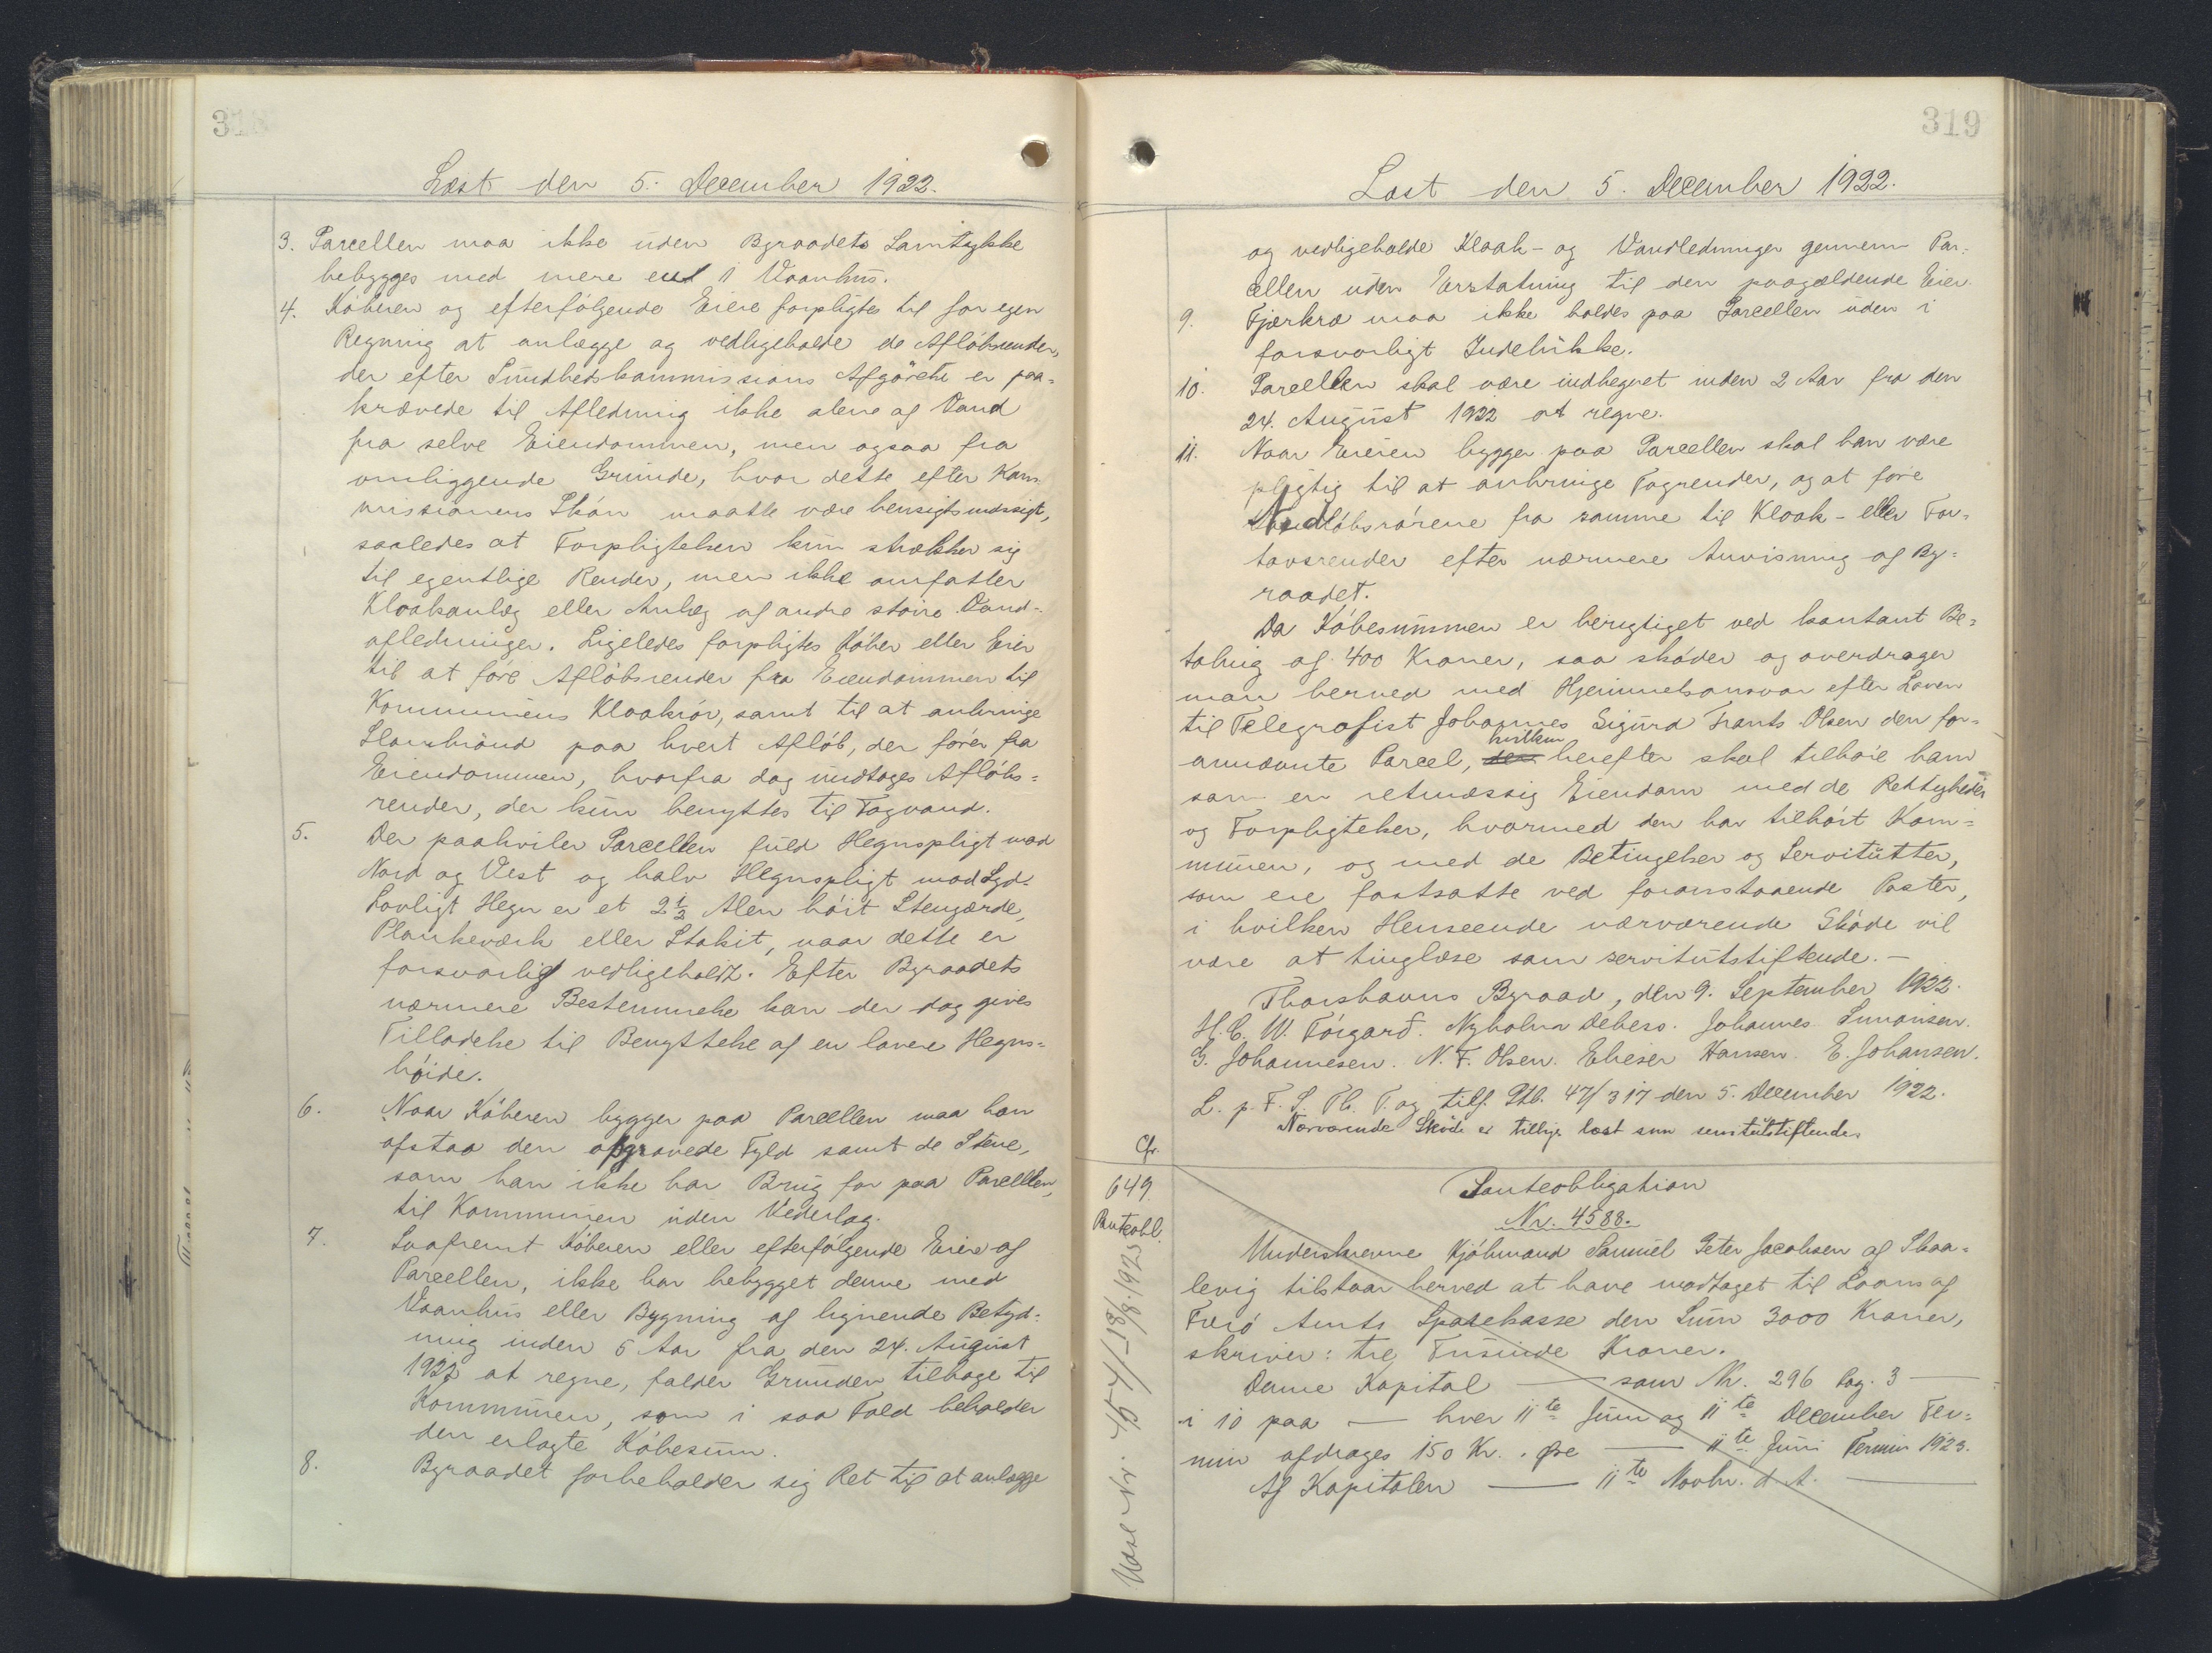 318
Læst den 5. December 1922.
3. Parcellen maa ikke uden Byraadets Samtykke
bebygges med mere end 1 Vaanhus.
4. Køberen og efterfølgende Eiere forpligtes til for egen
Regning at anlægge og vedligeholde de Afløbsrender,
der efter Sundhedskommissions Afgørelse er paa-
krævede til Afledning ikke alene af Vand
fra selve Eiendommen, men ogsaa fra
omliggende Grunde, hvor dette efter Kom-
missionens Skøn maatte være hensigtsmæssigt,
saaledes at Forpligtelsen kun strækker sig
til egentlige Render, men ikke omfatter
Kloakanlæg eller Anlæg af andre større Vand-
afledninger. Ligeledes forpligtes Køber eller Eier
til at føre Afløbsrender fra Eiendommen til
Kommunens Kloakrør, samt til at anbringe
Slambrønd paa hvert Afløb, der fører fra
Eiendommen, hvorfra dog undtages Afløbs=
render, der kun benyttes til Tagvand.
5. Der paahviler Parcellen fuld Hegnspligt mod
Nord og Vest og halv Hegnspligt mod Syd.
Lovligt Hegn er et 2 1/3 Alen høit Stengærde,
Plankeværk eller Stakit, naar dette er
forsvarligt vedligeholdt. Efter Byraadets
nærmere Bestemmelse kan der dog gives
Tilladelse til Benyttelse af en lavere Hegns=
høide.
6. Naar Køberen bygger paa Parcellen maa han
afstaa den opgravede Fyld samt de Stene,
som han ikke har Brug for paa Parcellen,
til Kommunen uden Vederlag.
7. Saafremt Køberen eller efterfølgende Eiere af
Parcellen, ikke har bebygget denne med
Vaanhus eller Bygning af lignende Betyd=
ning inden 5 Aar fra den 24. August
1922 at regne, falder Grunden tilbage til
Kommunen, som i saa Fald beholder
den erlagte Købesum.
8. Byraadet forbeholder sig Ret til at anlægge
319
Læst den 5. December 1922.
og vedligeholde Kloak- og Vandledninger gennem Par=
cellen uden Erstatning til den paagældende Eier.
9. Fjærkræ maa ikke holdes paa Parcellen uden i
forsvarligt Indelukke.
10. Parcellen skal være indhegnet inden 2 Aar fra den
24. August 1922 at regne.
11. Naar Eieren bygger paa Parcellen skal han være
pligtig til at anbringe Tagrender, og at føre
Nedløbsrørene fra samme til Kloak- eller For=
tovsrender efter nærmere Anvisning af By=
raadet.
Da Købesummen er berigtiget ved kontant Be=
taling af 400 Kroner, saa skøder og overdrager
man herved med Hjemmelsansvar efter Loven
til Telegrafist Johannes Sigurd Frants Olsen den for=
annævnte Parcel, den hvilken herefter skal tilhøre ham
som en retmæssig Eiendom med de Rettigheder
og Forpligtelser, hvormed den har tilhørt Kom=
munen, og med de Betingelser og Servitutter,
som ere fastsatte ved foranstaaende Poster,
i hvilken Henseende nærværende Skøde vil
være at tinglæse som servitutstiftende. —
Thorshavns Byraad, den 9. September 1922.
H. C. W. Tórgarð. Nyholm Debess. Johannes Simonsen.
G. Johannesen. N. F. Olsen. Elieser Hansen. E. Johansen.
L. p. F. S. Th. T. og tilf. Ptb. 47/317 den 5. December 1922.
Nærværende Skøde er tillige læst som servitutstiftende.
Cfr.
649.
Panteobl.
Udsl. Nr. 454/-18/8.1925
Panteobligation
Nr. 4588.
Underskrevne Kjøbmand Samuel Peter Jacobsen af Skaa=
levig tilstaar herved at have modtaget til Laans af
Færø Amts Sparekasse den Sum 3000 Kroner,
skriver: tre Tusinde Kroner.
Denne Kapital — som Nr. 296 Pag. 3 —
i 10 paa — hver 11te Juni og 11te December Ter=
min afdrages 150 Kr. . Øre — 11te Juni Termin 1923.
Af Kapitalen — 11te Novbr. d. A. —